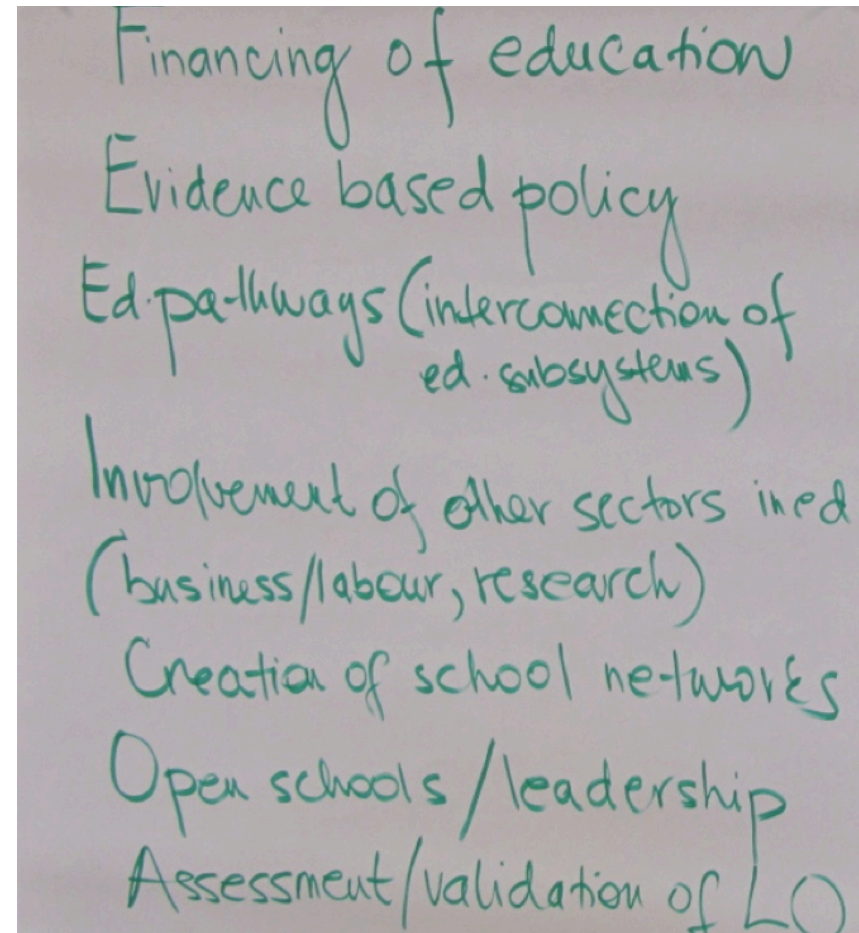 Financing of education
Evidence based policy
Ed. pathways (interconnection of
ed. subsystems)
Involvement of other sectors in ed
(business/labour, research)
Creation of school networks
Open schools/leadership
Assessment/validation of LO